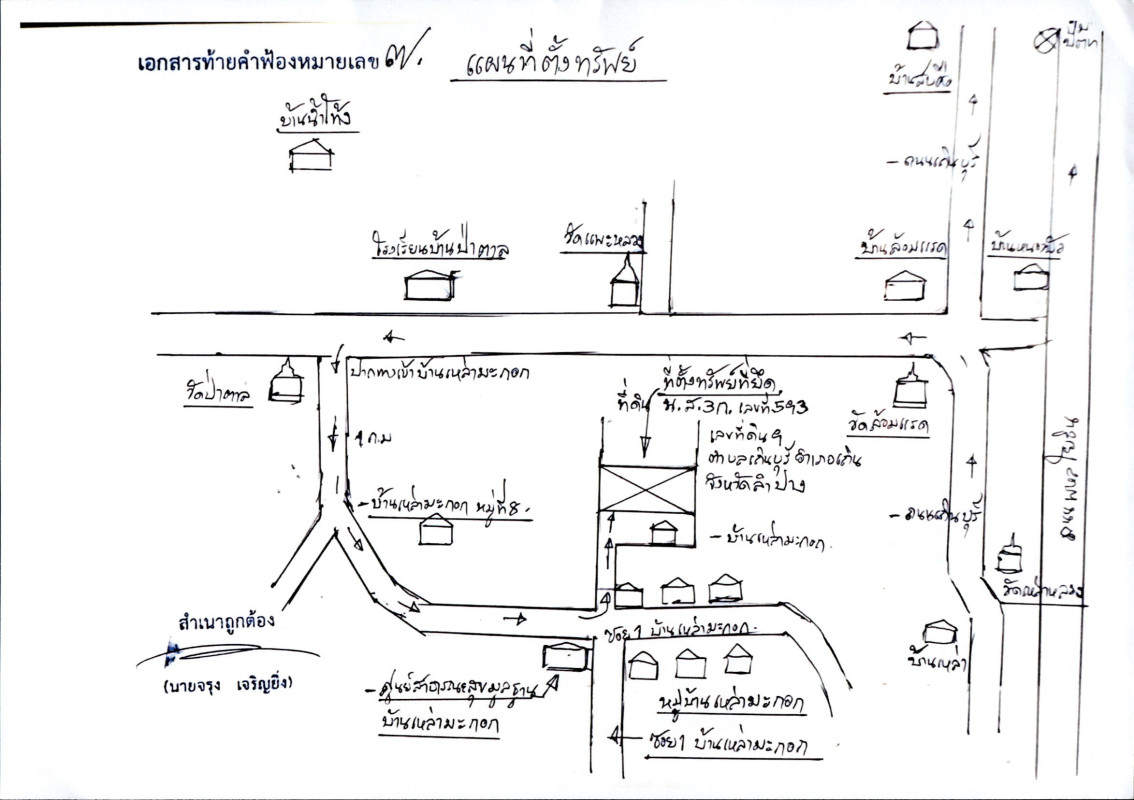 เอกสารท้ายคำฟ้องหมายเลข ๗.
แผนที่ตั้งทรัพย์
ปั๊ม
ปตท
บ้านสบคือ
บ้านน้ำโท้ง
- ถนนเถินบุรี
โรงเรียนบ้านป่าตาล
วัดแพะหลวง
บ้านล้อมแรด
บ้านหนองบัว
ปากทางเข้าบ้านเหล่ามะกอก
วัดป่าตาล
ที่ตั้งทรัพย์ที่ยึด
ที่ดิน น.ส.3ก. เลขที่ 593
เลขที่ดิน 9
ตำบลเถินบุรี อำเภอเถิน
จังหวัดลำปาง
วัดล้อมแรด
1 ก.ม
- บ้านเหล่ามะกอก หมู่ที่ 8.
- บ้านเหล่ามะกอก.
- ถนนเถินบุรี
ถนนพหลโยธิน
วัดเหล่าหลวง
สำเนาถูกต้อง
(นายจรุง เจริญยิ่ง)
ซอย 1 บ้านเหล่ามะกอก.
บ้านเหล่า
- ศูนย์สาธารณสุขมูลฐาน
บ้านเหล่ามะกอก
หมู่บ้านเหล่ามะกอก
ซอย 1 บ้านเหล่ามะกอก